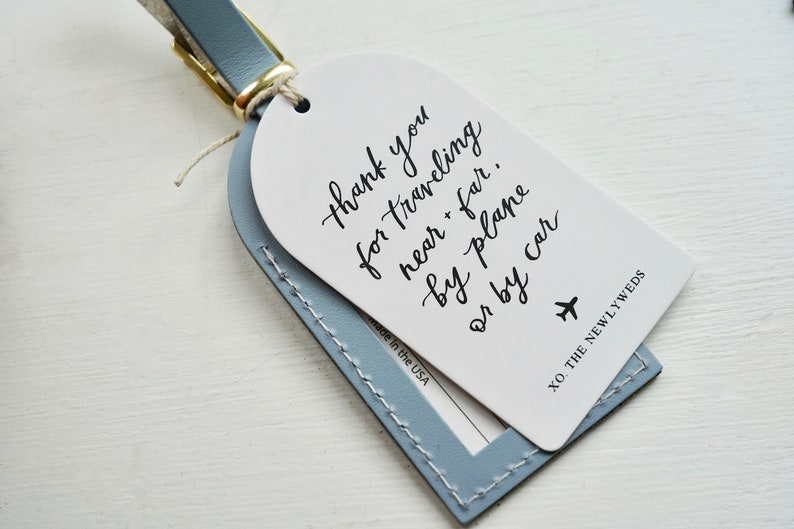 thank you
for traveling
near + far,
by plane
or by car
XO, THE NEWLYWEDS
made in the USA